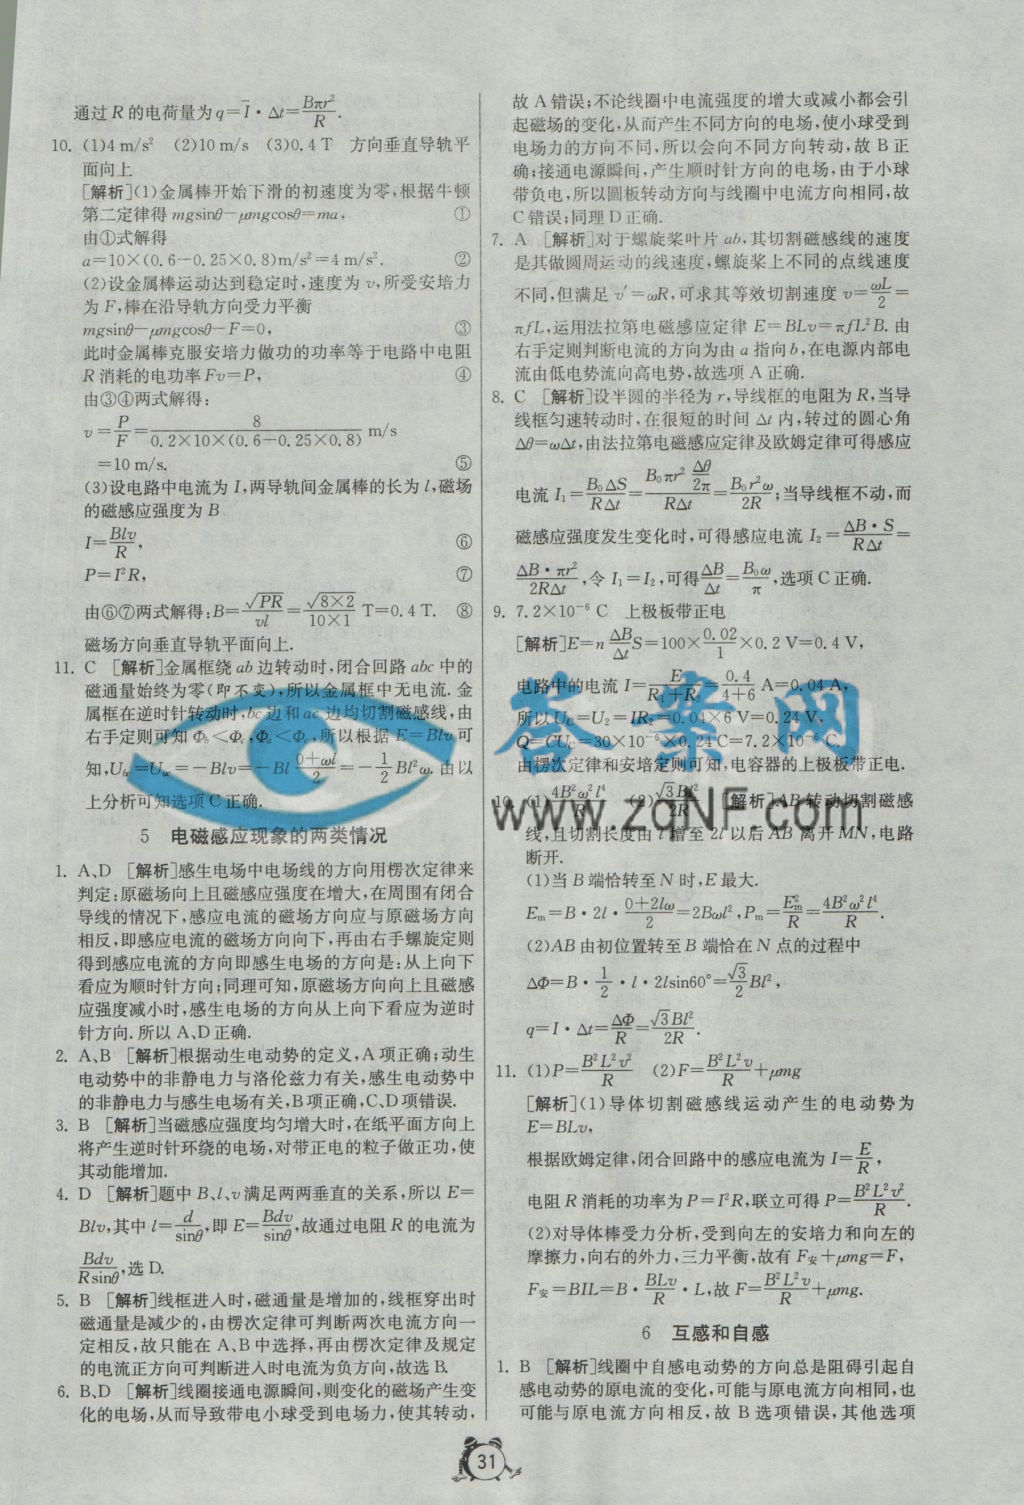 通过 R 的电荷量为 q=I̅・Δt=Bπr²/R.
10. (1)4 m/s²  (2)10 m/s  (3)0.4 T  方向垂直导轨平
面向上
[解析](1)金属棒开始下滑的初速度为零,根据牛顿
第二定律得 mgsinθ−μmgcosθ=ma, ①
由①式解得
a=10×(0.6−0.25×0.8)m/s²=4 m/s². ②
(2)设金属棒运动达到稳定时,速度为 v,所受安培力
为 F,棒在沿导轨方向受力平衡
mgsinθ−μmgcosθ−F=0, ③
此时金属棒克服安培力做功的功率等于电路中电阻
R 消耗的电功率 Fv=P, ④
由③④两式解得:
v=P/F=8/(0.2×10×(0.6−0.25×0.8)) m/s
=10 m/s. ⑤
(3)设电路中电流为 I,两导轨间金属棒的长为 l,磁场
的磁感应强度为 B
I=Blv/R, ⑥
P=I²R, ⑦
由⑥⑦两式解得:B=√PR/vl=√8×2/10×1 T=0.4 T. ⑧
磁场方向垂直导轨平面向上.
11. C [解析]金属框绕 ab 边转动时,闭合回路 abc 中的
磁通量始终为零(即不变),所以金属框中无电流.金
属框在逆时针转动时,bc 边和 ac 边均切割磁感线,由
右手定则可知 Φb<Φc,Φa<Φc,所以根据 E=Blv 可
知,Ubc=Uac=−Blv=−Bl (0+ωl)/2=−1/2 Bl²ω.由以
上分析可知选项 C 正确.
5 电磁感应现象的两类情况
1. A、D [解析]感生电场中电场线的方向用楞次定律来
判定:原磁场向上且磁感应强度在增大,在周围有闭合
导线的情况下,感应电流的磁场方向应与原磁场方向
相反,即感应电流的磁场方向向下,再由右手螺旋定则
得到感应电流的方向即感生电场的方向是:从上向下
看应为顺时针方向;同理可知,原磁场方向向上且磁感
应强度减小时,感生电场的方向从上向下看应为逆时
针方向.所以 A、D 正确.
2. A、B [解析]根据动生电动势的定义,A 项正确;动生
电动势中的非静电力与洛伦兹力有关,感生电动势中
的非静电力与感生电场有关,B 项正确,C、D 项错误.
3. B [解析]当磁感应强度均匀增大时,在纸平面方向上
将产生逆时针环绕的电场,对带正电的粒子做正功,使
其动能增加.
4. D [解析]题中 B、l、v 满足两两垂直的关系,所以 E=
Blv,其中 l=d/sinθ,即 E=Bdv/sinθ,故通过电阻 R 的电流为
Bdv/Rsinθ,选 D.
5. B [解析]线框进入时,磁通量是增加的,线框穿出时
磁通量是减少的,由楞次定律可判断两次电流方向一
定相反,故只能在 A、B 中选择,再由楞次定律及规定
的电流正方向可判断进入时电流为负方向,故选 B.
6. B、D [解析]线圈接通电源瞬间,则变化的磁场产生变
化的电场,从而导致带电小球受到电场力,使其转动,
故 A 错误;不论线圈中电流强度的增大或减小都会引
起磁场的变化,从而产生不同方向的电场,使小球受到
电场力的方向不同,所以会向不同方向转动,故 B 正
确;接通电源瞬间,产生顺时针方向的电场,由于小球
带负电,所以圆板转动方向与线圈中电流方向相同,故
C 错误;同理 D 正确.
7. A [解析]对于螺旋桨叶片 ab,其切割磁感线的速度
是其做圆周运动的线速度,螺旋桨上不同的点线速度
不同,但满足 v′=ωR,可求其等效切割速度 v=ωL/2=
πfL,运用法拉第电磁感应定律 E=BLv=πfL²B.由
右手定则判断电流的方向为由 a 指向 b,在电源内部电
流由低电势流向高电势,故选项 A 正确.
8. C [解析]设半圆的半径为 r,导线框的电阻为 R,当导
线框匀速转动时,在很短的时间 Δt 内,转过的圆心角
Δθ=ωΔt,由法拉第电磁感应定律及欧姆定律可得感应
电流 I₁=B₀ΔS/RΔt=B₀πr² (Δθ/2π)/RΔt=B₀r²ω/2R;当导线框不动,而
磁感应强度发生变化时,可得感应电流 I₂=ΔB・S/RΔt=
ΔB・πr²/2RΔt,令 I₁=I₂,可得ΔB/Δt=B₀ω/π,选项 C 正确.
9. 7.2×10⁻⁶ C  上极板带正电
[解析]E=n ΔB/Δt S=100×0.02/1×0.2 V=0.4 V,
电路中的电流 I=E/(R₁+R₂)=0.4/(4+6) A=0.04 A,
所以 UC=U₂=IR₂=0.04×6 V=0.24 V,
Q=CUC=30×10⁻⁶×0.24 C=7.2×10⁻⁶ C.
由楞次定律和安培定则可知,电容器的上极板带正电.
10. (1)4B²ω²l⁴/R  (2)√3Bl²/2R  [解析]AB 转动切割磁感
线,且切割长度由 l 增至 2l 以后 AB 离开 MN,电路
断开.
(1)当 B 端恰转至 N 时,E 最大.
Em=B・2l・(0+2lω)/2=2Bωl²,Pm=Em²/R=4B²ω²l⁴/R.
(2)AB 由初位置转至 B 端恰在 N 点的过程中
ΔΦ=B・1/2・l・2lsin60°=√3/2 Bl²,
q=I・Δt=ΔΦ/R=√3Bl²/2R.
11. (1)P=B²L²v²/R  (2)F=B²L²v/R+μmg
[解析](1)导体切割磁感线运动产生的电动势为
E=BLv,
根据欧姆定律,闭合回路中的感应电流为 I=E/R,
电阻 R 消耗的功率为 P=I²R,联立可得 P=B²L²v²/R.
(2)对导体棒受力分析,受到向左的安培力和向左的
摩擦力,向右的外力,三力平衡,故有 F安+μmg=F,
F安=BIL=B・BLv/R・L,故 F=B²L²v/R+μmg.
6 互感和自感
1. B [解析]线圈中自感电动势的方向总是阻碍引起自
感电动势的原电流的变化,可能与原电流方向相同,也
可能与原电流方向相反,故 B 选项错误,其他选项
31
答案网
www.zqNF.com